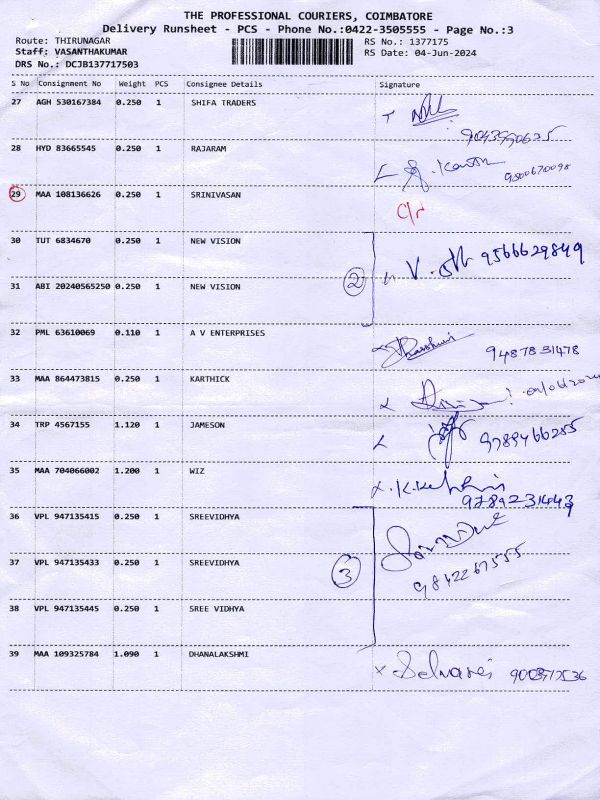 THE PROFESSIONAL COURIERS, COIMBATORE
Delivery Runsheet - PCS - Phone No.:0422-3505555 - Page No.:3
Route: THIRUNAGAR
RS No.: 1377175
Staff: VASANTHAKUMAR
RS Date: 04-Jun-2024
DRS No.: DCJB137717503
S No Consignment No Weight PCS Consignee Details Signature
27 AGH 530167384 0.250 1 SHIFA TRADERS
28 HYD 83665545 0.250 1 RAJARAM
9500670098
29 MAA 108136626 0.250 1 SRINIVASAN
30 TUT 6834670 0.250 1 NEW VISION
9566629849
31 ABI 20240565250 0.250 1 NEW VISION
2
32 PML 63610069 0.110 1 A V ENTERPRISES
9487831478
33 MAA 864473815 0.250 1 KARTHICK
34 TRP 4567155 1.120 1 JAMESON
9789466255
35 MAA 704066002 1.200 1 WIZ
36 VPL 947135415 0.250 1 SREEVIDHYA
37 VPL 947135433 0.250 1 SREEVIDHYA
3
9842267555
38 VPL 947135445 0.250 1 SREE VIDHYA
39 MAA 109325784 1.090 1 DHANALAKSHMI
Selvaraj